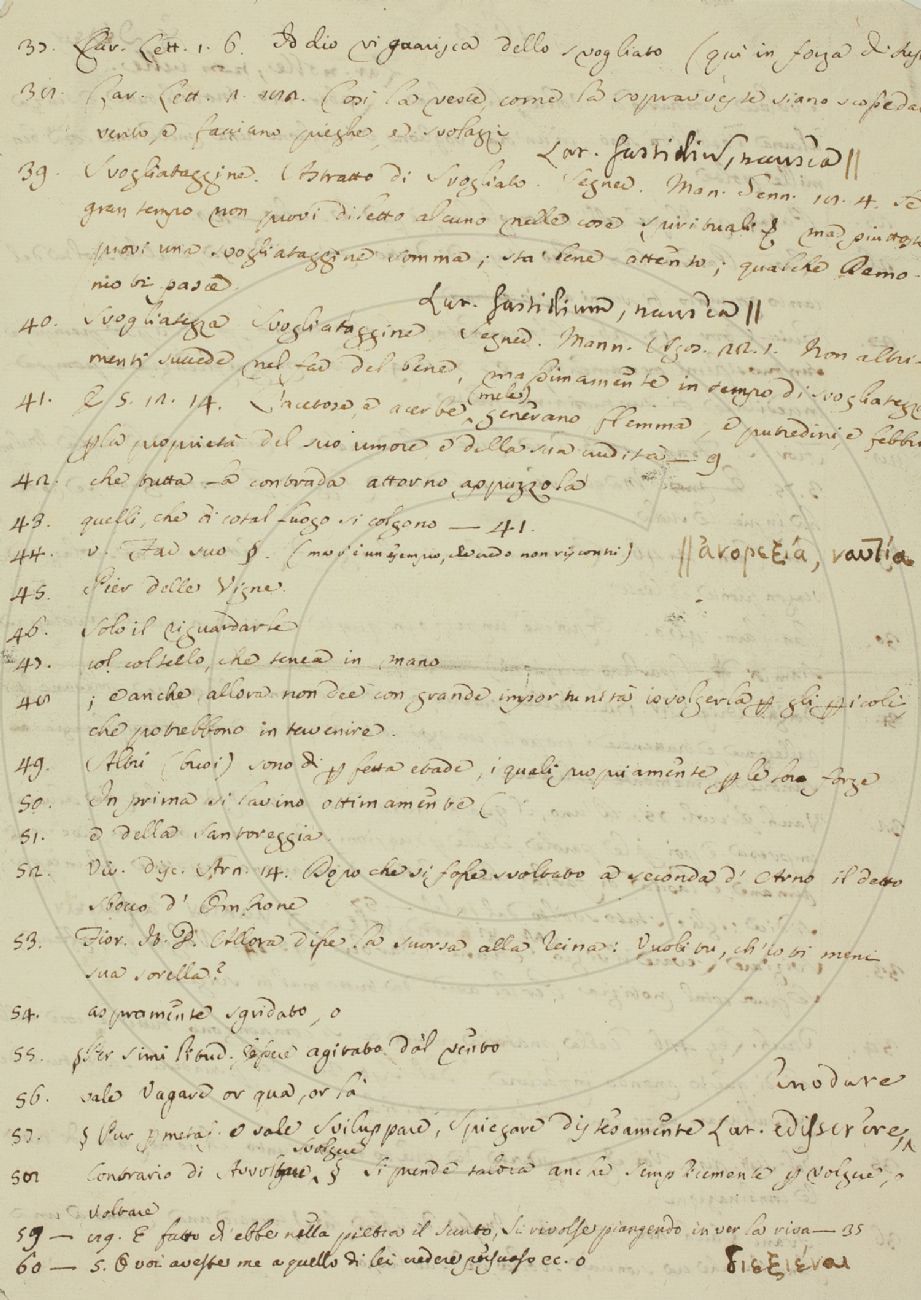 37. Car. Lett. 1. 6. Iddio vi guarisca dello svogliato (qui in forza di
38. Car. Lett. 2. Così la veste, come la sopravveste siano
vento, e facciano pieghe, e svolazzi
Lat. fastidiũ, nausea ||
39. Svogliataggine. Astratto di Svogliato. Segner. Mann. Genn. 4. Se
gran tempo non provi diletto alcuno nelle cose spirituali, ma piuttosto
provi una svogliataggine somma; sta bene attento; qualche Demo-
nio vi pasce.
Lat. fastidium, nausea ||
40. Svogliatezza Svogliataggine Segner. Mann. Non altri-
menti succede nel far del bene, massimamente in tempo di svogliatezza
(mele)
41. E 5. 12. 14. L'acetose, e acerbe generano flemma, e putredini, e febbri
p la proprietà del suo umore, e della sua crudità — 9
42. che tutta la contrada attorno appuzzola
43. quelli, che di cotal luogo si colgono — 41.
44. v. Far suo §. (ma vi è un esempio, che non riscontri) || ἀνορεξία, ναυτία
45. Pier delle Vigne
46. Solo il riguardarle
47. col coltello, che tenea in mano
48 ; e anche allora non dee con grande importunità rivolgerla p gli picoli,
che potrebbono intervenire.
49. Altri (buoi) sono di pfetta etade, i quali propiamente p le loro forze
50. In prima si lavino ottimamente (
51. e della santoreggia
52. Viv. Disc. Arn. 14. Dopo che si fosse svoltato a seconda d'Arno il detto
sbocco d'Ombrone
53. Fior. It. D. Allora disse la suora alla Reina: Vuoli tu, ch'io ti meni
sua sorella?
54. aspramente sgridato, o
55. § Per similitud. Essere agitato dal vento
56. vale Vagare or qua, or là
enodare
57. § Pur p metaf. vale Sviluppare, Spiegare distesamente Lat. edisserere,
svolgere
58 Contrario di Avvolgere, § Si prende talora anche semplicemente p volgere, o
voltare
59 — E fatto ch'ebbe nella pietra il santo, si rivolse piangendo in ver la riva — 35
60 — 5. O voi aveste me a quello di lei credere persuaso ec. o διεξιέναι